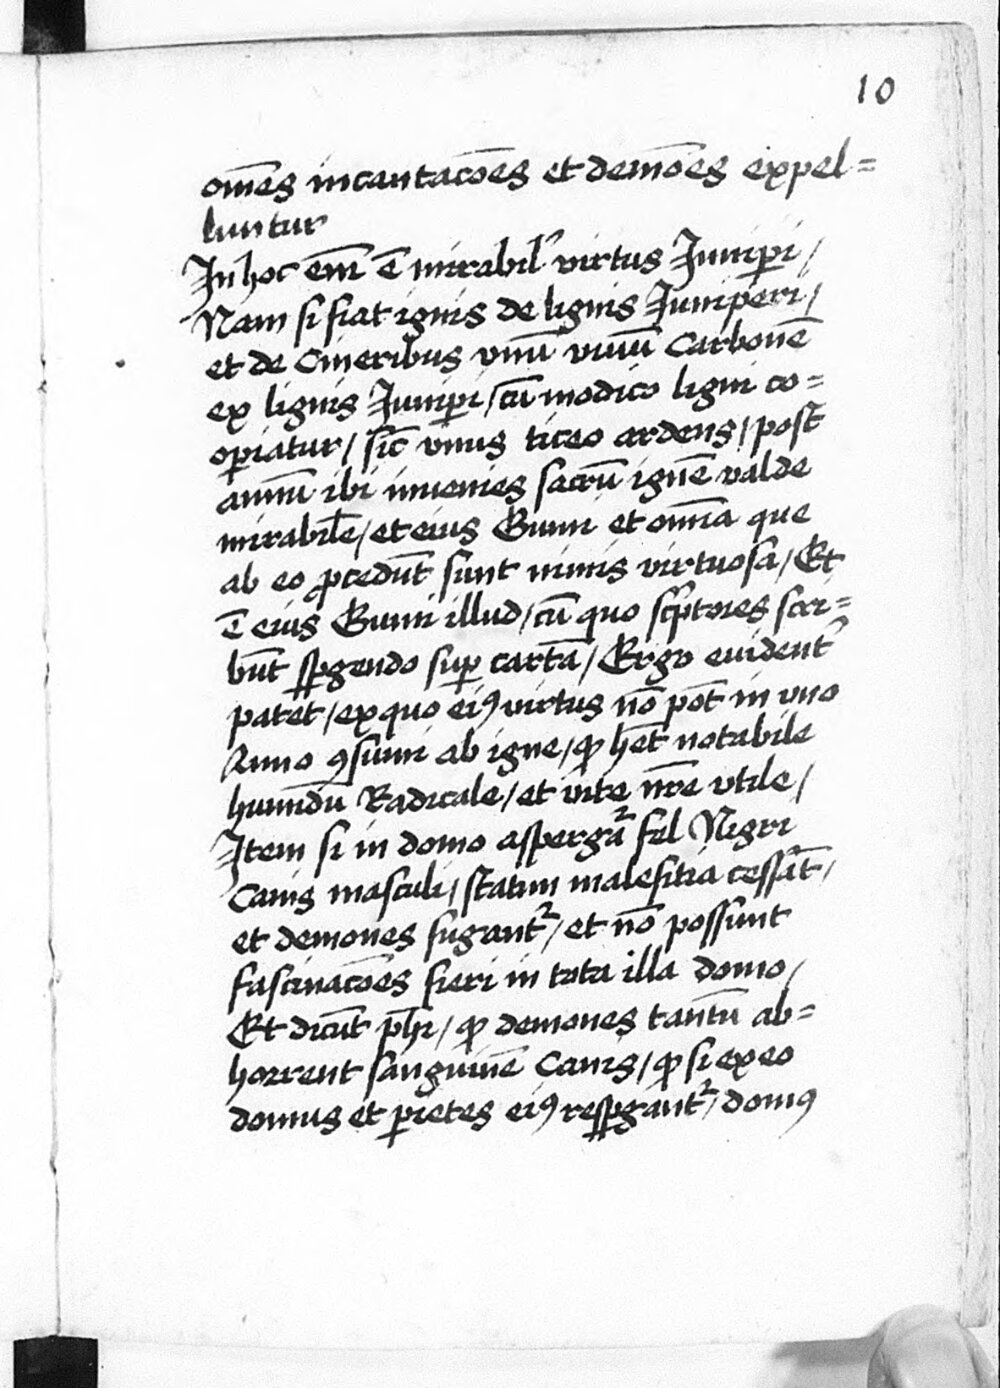 10
om̄es incantacōes et demōes expel=
luntur
In hoc em̄ ē mirabil' virtus Iunip̱i /
Nam si fiat ignis de lignis Iuniperi /
et de Cineribus vnū viuū Carbonē
ex lignis Iunip̱i / cū modico ligni co=
op̱iatur / sic̄ vnius ticeo ardens / post
annū ibi inuenies sacrū ignē valde
mirabilē / et eius Gumi et om̄ia que
ab eo ꝓcedūt sunt nimis virtuosa / Et
ē eius Gumi illud / cū quo sc̄ptores scri=
būt sp̱gendo sup̱ cartā / Ergo euident'
patet / ex quo eiꝰ virtus nō pōt in vno
Anno ꝯsumi ab igne / ꝙ h̄et notabile
humidū Radicale / et vite nr̄e vtile /
Item si in domo aspergat᷑ fel Nigri
Canis masculi / statim malefitia cessāt /
et demones fugant᷑ / et nō possunt
fascinacōes fieri in tota illa domo /
Et dicūt ph̄i / ꝙ demones tantū ab=
horrent sanguinē Canis / ꝙ si ex eo
domus et p̱ietes eiꝰ resp̱gant᷑ / domꝰ